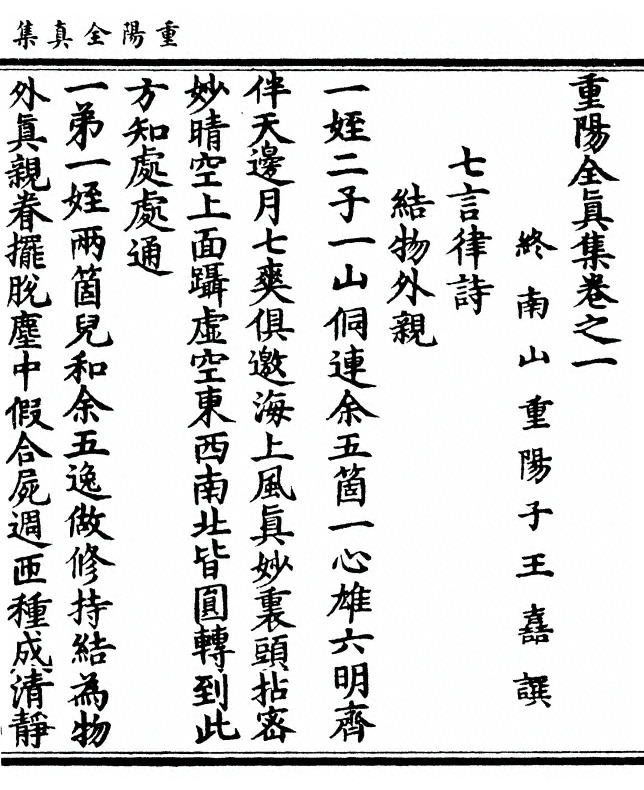 重陽全真集
重陽全眞集卷之一
終南山重陽子王嚞譔
七言律詩
結物外親
一姪二子一山侗連余五箇一心雄六明齊
伴天邊月七爽俱邀海上風眞妙裏頭拈密
妙晴空上面躡虛空東西南北皆圓轉到此
方知處處通
一弟一姪兩箇兒和余五逸做修持結為物
外眞親眷擺脫塵中假合屍週匝種成清靜